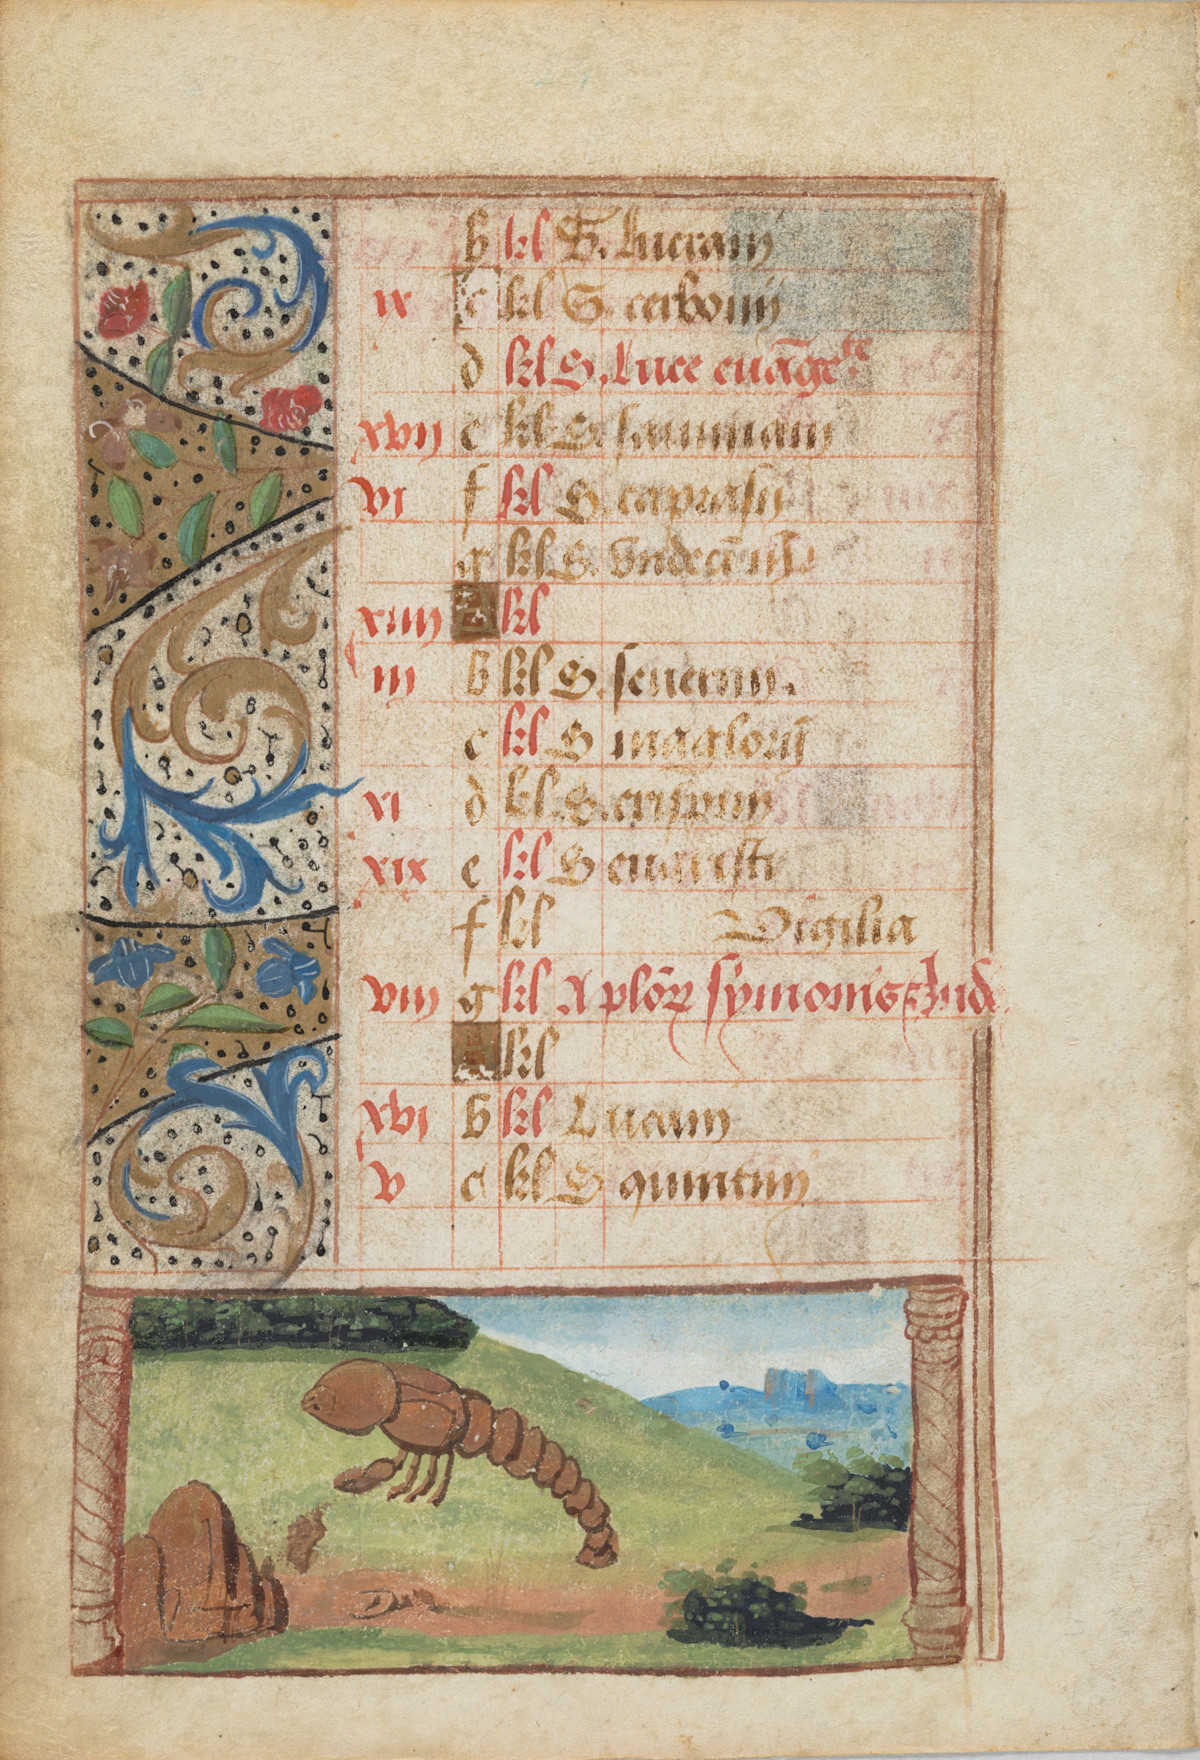 b kl S. luciani
ix c kl S. cerbonij
d kl S. Luce euāgeˡᵉ
xvij e kl S.
vi f kl S. caprasij
g kl S. vndecī
xiiij A kl
iij b kl S. seuerini.
c kl S maglorij
xi d kl S. crispini
xix e kl S euaristi
f kl Vigilia
viij g kl Aplōꝝ symonis ⁊ Jud
A kl
xvi b kl Lucani
v c kl S quintini